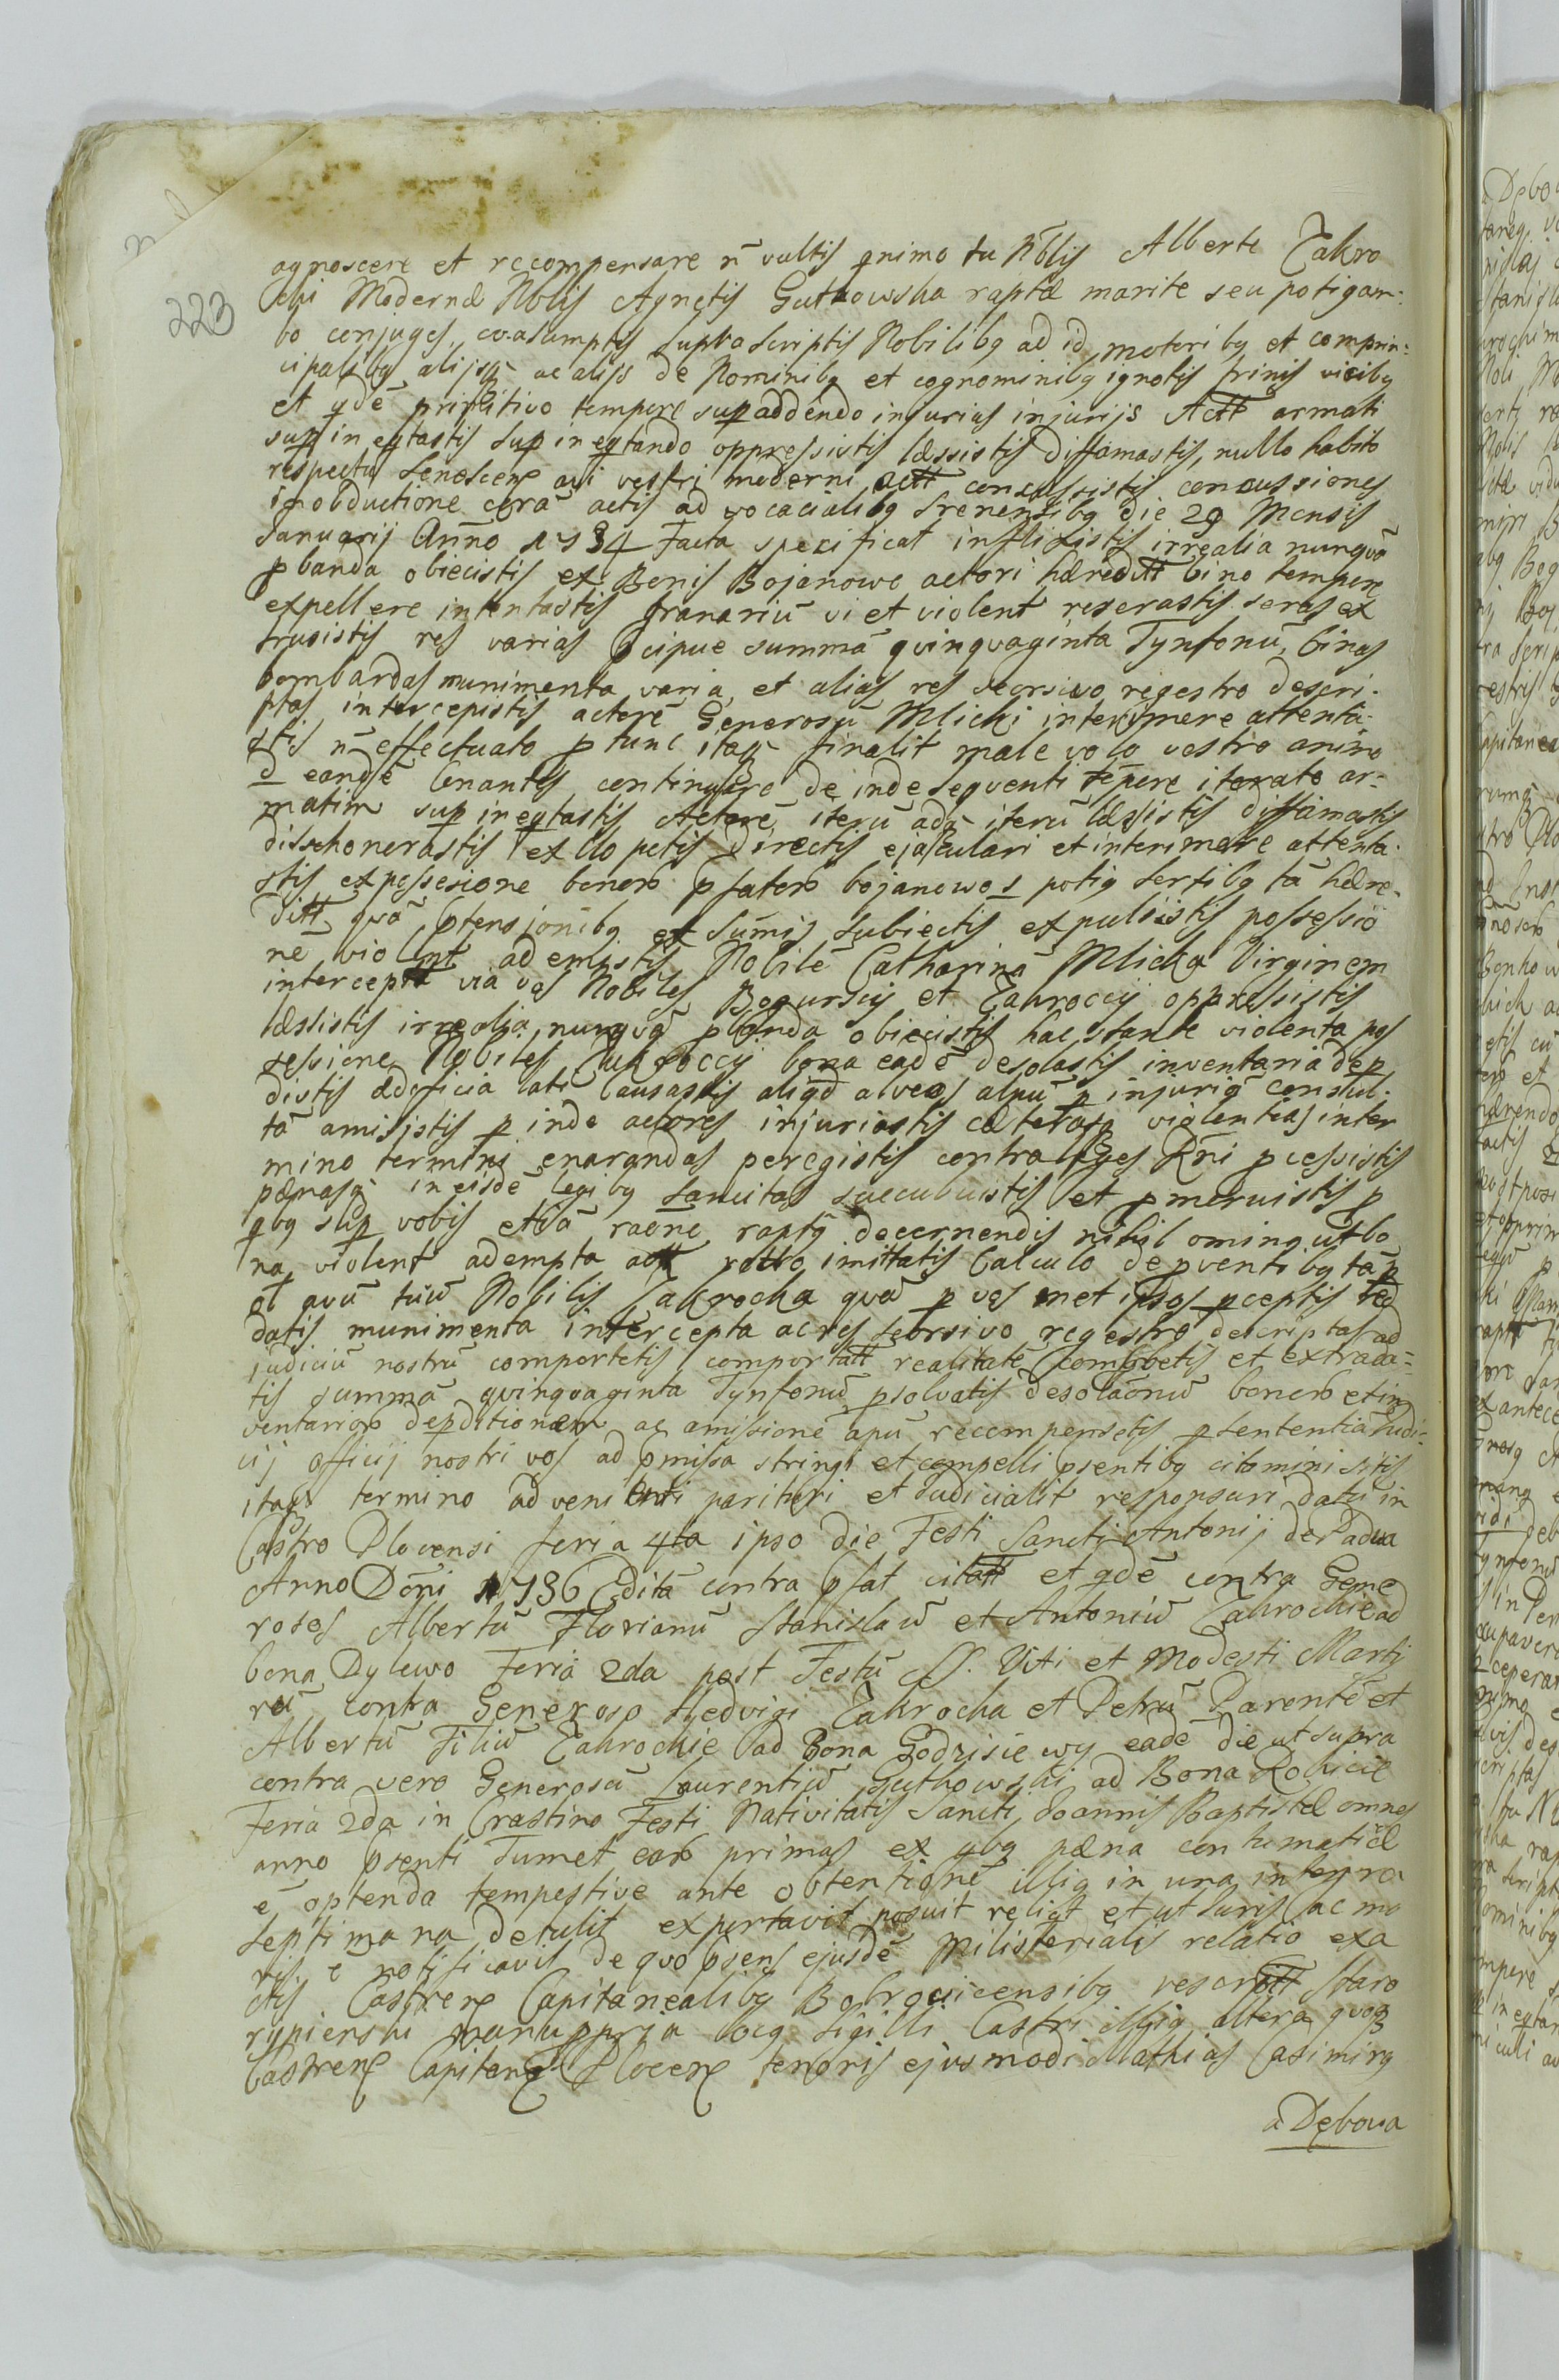 223
agnoscere et recompensare ñ vultis qnimo tu Nblis Alberte Zakro
cki Modernæ Noblis Agnetis Gutkowska raptæ marite seu potigam:
bo conjuges, coasumptis supra scriptis Nobilibg ad id motoribg et comprin:
cipalibg alijsq ac alijs de Nominibg et cognominibg ignotis trinis vicibg
et qdē primitivo tempore supaddendo injurias injurijs Actt armati
sup in eqtastis sup in eqtando oppressistis læssistis diffamastis, nullo habito
respectu senescene avi vestri moderni actt concussistis concussiones
in obductione corā actis ad vocacialibg Srenensibg die 29 Mensis
Januarij Anno 1734 Facta specificat inflixistis irrealia nunqvā
pbanda obiecistis ex Bonis Bojanowo actori hæreditt bino tempore
expellere intentastis Granariū vi et violent reserastis seras ex
trusistis res varias pcipue summā qvinqvaginta Tynfonū, binas
bombardas munimenta varia et alias res seorsivo regestro descri:
ptas intercepistis actorē Generosū Mlicki interimere attenta:
stis ñ effectuato p tunc itaq finalit male volo vestro animo
d eandē Conantes continuare de inde seqventi tēpore iterato ar=
matim sup ineqtastis Actorē iterū adq iterū læsistis diffamastis
dissehonerastis ex sclopetis directis ejaculari et interimere attenta:
stis ex possesione bonoro psatoro bojanowo potig sertibg tā hære:
ditt qvā ptensjonibg et sumis subiectis expulsistis possessio
ne violnt ademistis Nobilē Catharinā Mlicka Virginem
intercepta via vos Nobiles Bogurscij et Zakroccij oppressistis
læssistis irrealia, nunqvā pbanda obiecistis hac stante violenta pos
sessione Nobiles Zakroccij bona eadē desolastis inventaria dep
distis ædificia lati causastis aliqd alveos apuū p injuriā consul:
tā amisistis p inde actores injuriastis cæterasq violentias inter
mino termini enarandas peregistis contra leges Rni pcessistis
pænasq in eisdē legibg sancitas succubuistis et pmeruistis p
qbg sup vobis etiā raōne raptg decernendis nihil oming ut bo
na violent adempta actt retro imittatis Calculo de pventibg tā p
ol avū tuū Nobilis Zakrocka qvā p vos met ipsos pceptis red
datis munimenta intercepta ac res seorsivo regestro descriptas ad
judiciū nostrū comportetis comportatt realitatē comprobetis et extrada=
tis summā qvinqvaginta Tynfonū psolvatis desolāonū bonoro et in
ventarioro depditionem ac amissionē apū recompensetis p sententiā Judi:
cij officij nostri vos ad pmissa stringi et compelli psentibg cito mini sitis
itaq termino advenienti parituri et Judicialit responsuri datū in
Castro Plocensi feria 4ta ipso die Festi Sancti Antonij de Padua
Anno Dōni 1736 Editā contra psat citatt et qdē contra Gene
rosos Albertū Florianū Stanislaū et Antoniū Zakrockie ad
bona Dylewo Feria 2da post Festū SS. Viti et Modesti Marty
rū contra Generoso Hedvigi Zakrocka et Petrū Parentē et
Albertū Filiū Zakrockie ad Bona Godzisiewy eadē die ut supra
contra vero Generosū Laurentiū Guthowski ad Bona Rokicie
Feria 2da in Crastino Festi Nativitatis Sancti Joannis Baptistæ omnes
anno psenti Tumet earo primas ex qbg pæna contumatiæ
ē optenda tempestive ante obtentionē illig in una integra
septimana detulit exportavit posuit reliqt et ut Juris ac mo
ris ē notificavit de qvo psens ejusdē Ministerialis relatio exa
ctis Castrens Capitanealibg Bobrovicensibg rescriptt Staro
rypienski manu ppria locg sigilli Castri illig altera qvoq
Castrens Capitans Plocens tenoris ejusmodi Mathias Casimirg
a Dębowa